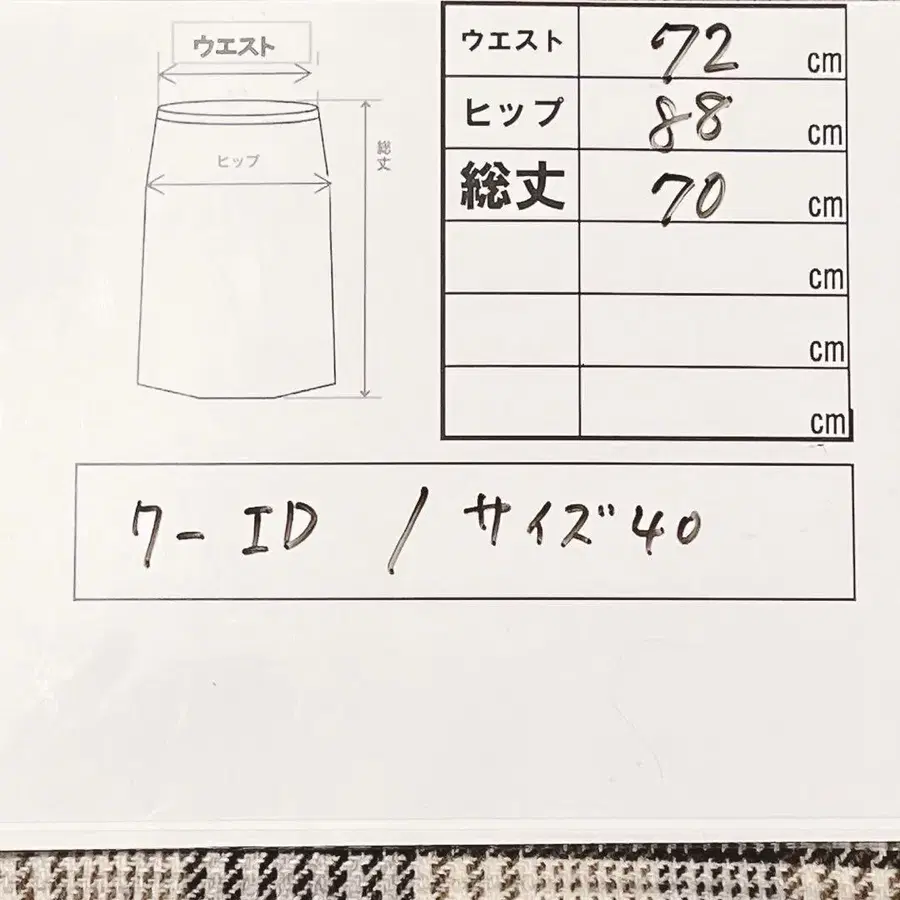 ウエスト
ヒップ
総丈
ウエスト 72 cm
ヒップ 88 cm
総丈 70 cm
cm
cm
cm
7-ID / サイズ40